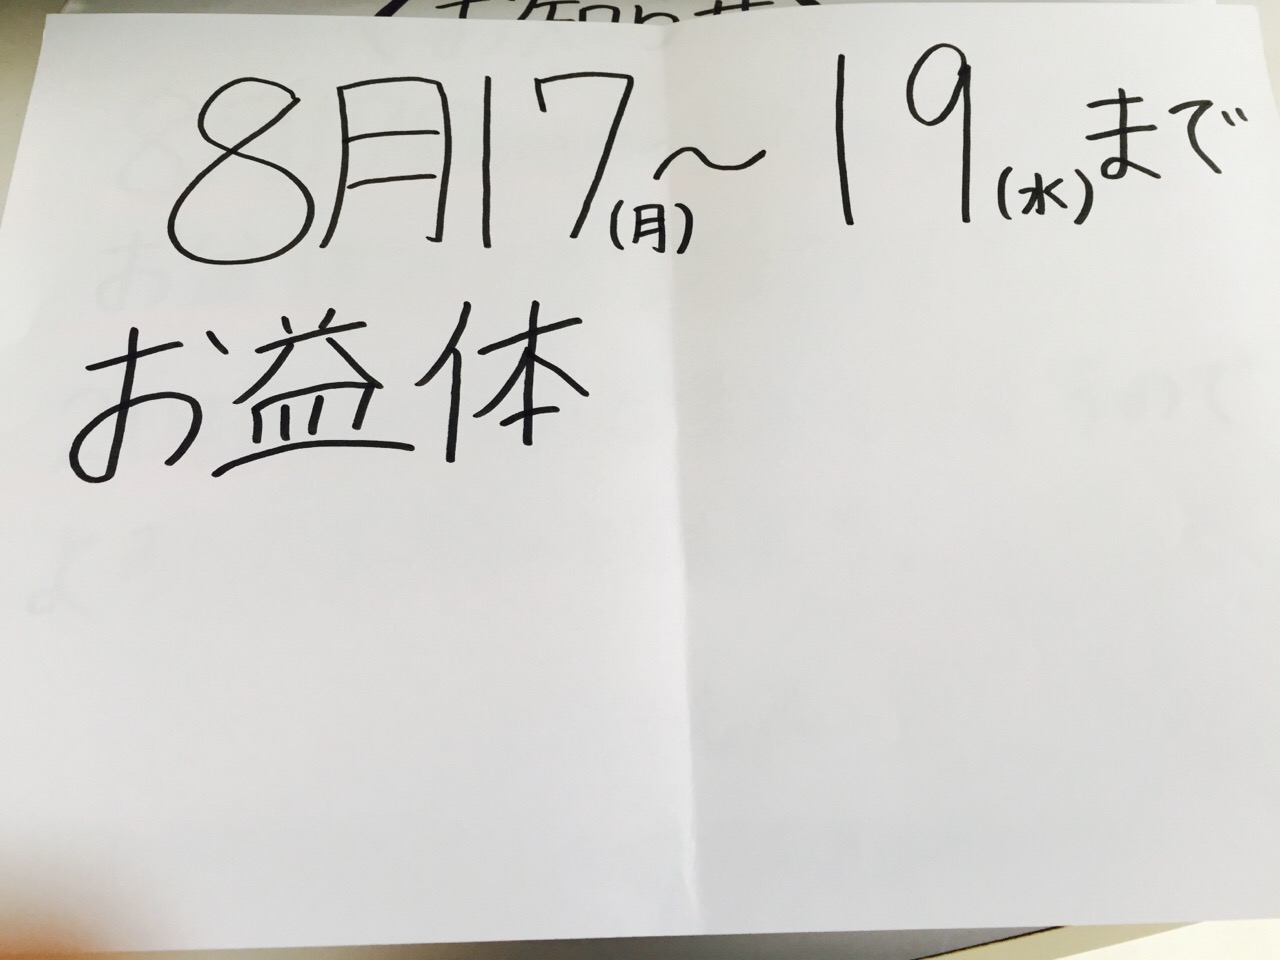 8月17(月)〜19(水)まで
お益体